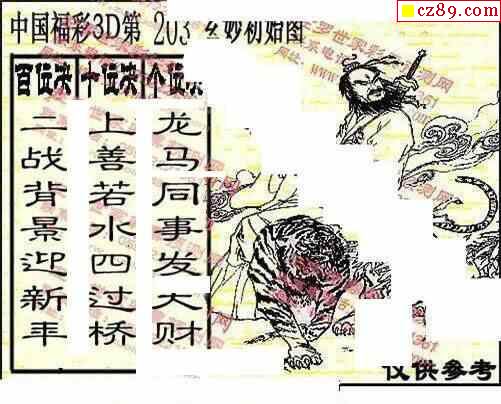 cz89.com
中国福彩3D第 203 玄妙初始图
百位决 十位决 个位决
二战背景迎新年
上善若水四过桥
龙马同事发大财
仅供参考